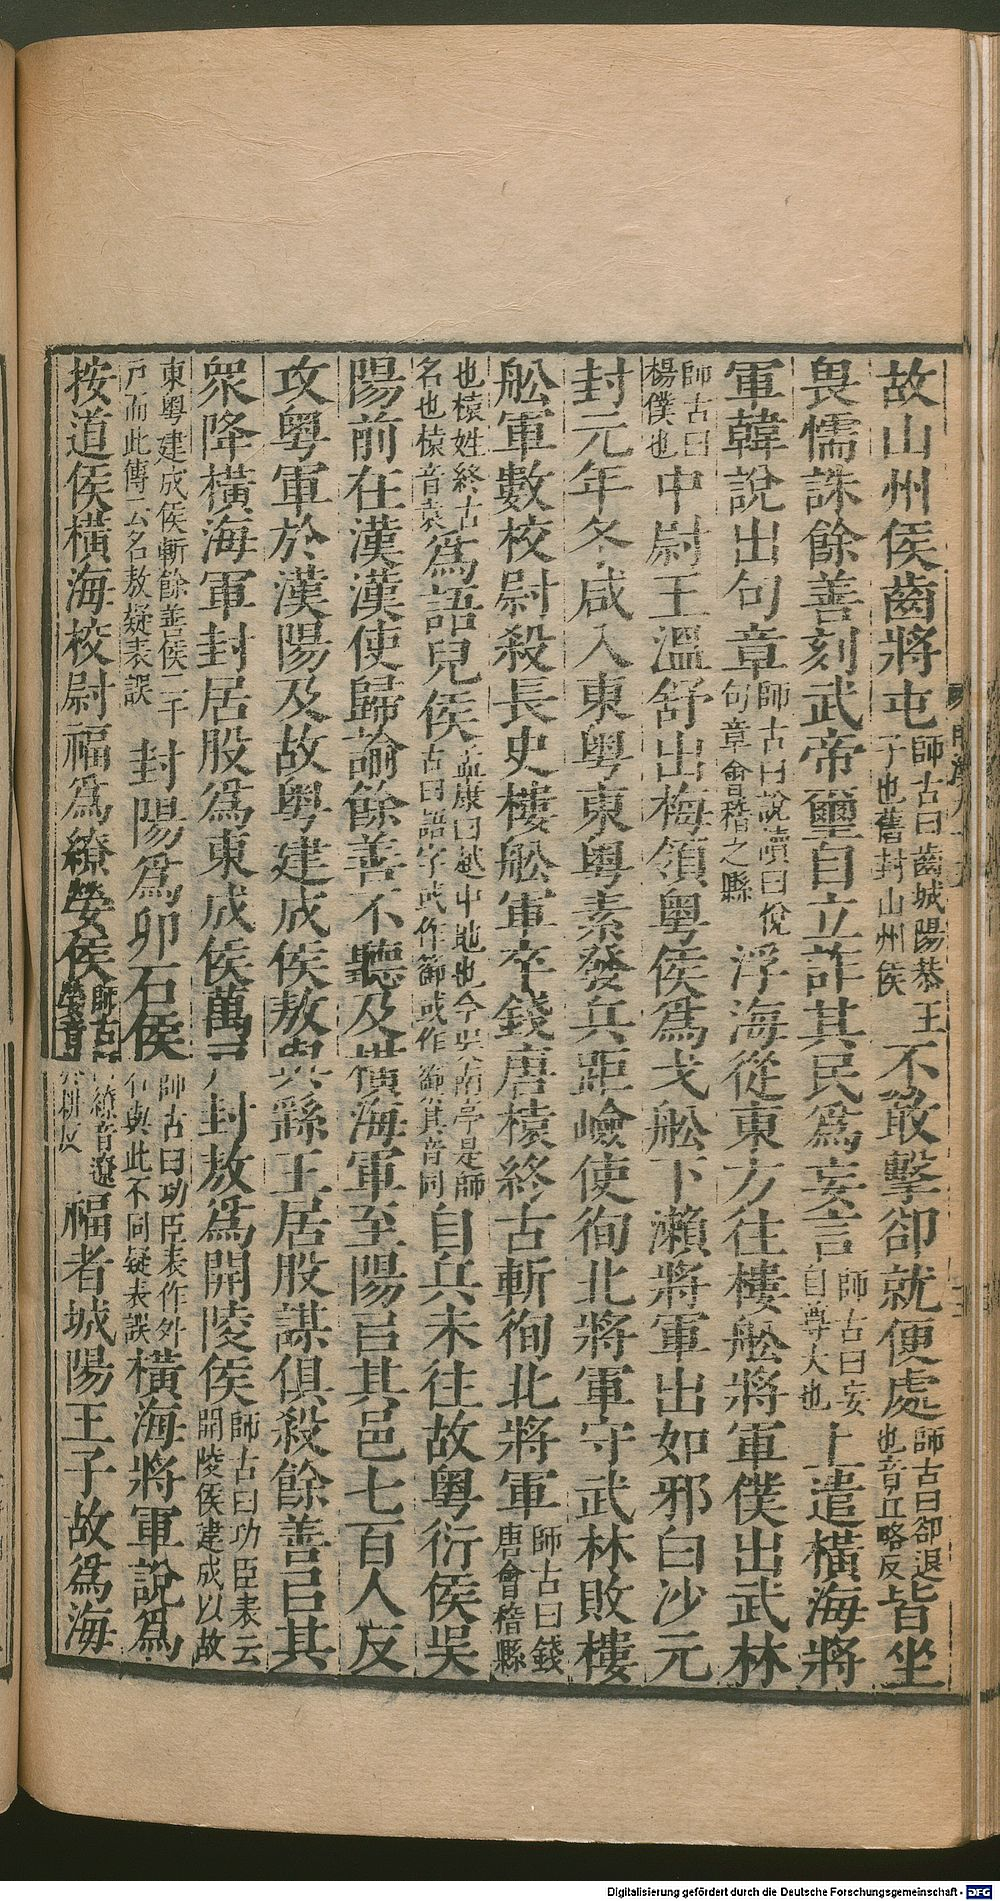 故山州侯齒將屯師古曰齒城陽恭王子也舊封山州侯不敢擊卻就便處師古曰卻退也音丘略反皆坐
畏懦誅餘善刻武帝璽自立詐其民為妄言師古曰妄自尊大也上遣橫海將
軍韓說出句章師古曰說讀曰悅句章會稽之縣浮海從東方往樓舩將軍僕出武林
師古曰楊僕也中尉王溫舒出梅領粵侯為戈舩下瀨將軍出如邪白沙元
封元年冬咸入東粵東粵素發兵距嶮使徇北將軍守武林敗樓
舩軍數校尉殺長史樓舩軍卒錢唐榬終古斬徇北將軍師古曰錢唐會稽縣
也榬姓終古名也榬音袁為語兒侯孟康曰越中地也今吳南亭是師古曰語字或作籞或作篽其音同自兵未往故粵衍侯吳
陽前在漢漢使歸諭餘善不聽及橫海軍至陽㠯其邑七百人反
攻粵軍於漢陽及故粵建成侯敖與繇王居股謀俱殺餘善㠯其
眾降橫海軍封居股為東成侯萬戶封敖為開陵侯師古曰功臣表云開陵侯建成以故
東粵建成侯斬餘善侯二千戶而此傳云名敖疑表誤封陽為卯石侯師古曰功臣表作外石與此不同疑表誤橫海將軍說為
按道侯橫海校尉福為繚嫈侯師古曰繚音遼嫈音耕反福者城陽王子故為海
Digitalisierung gefördert durch die Deutsche Forschungsgemeinschaft - DFG